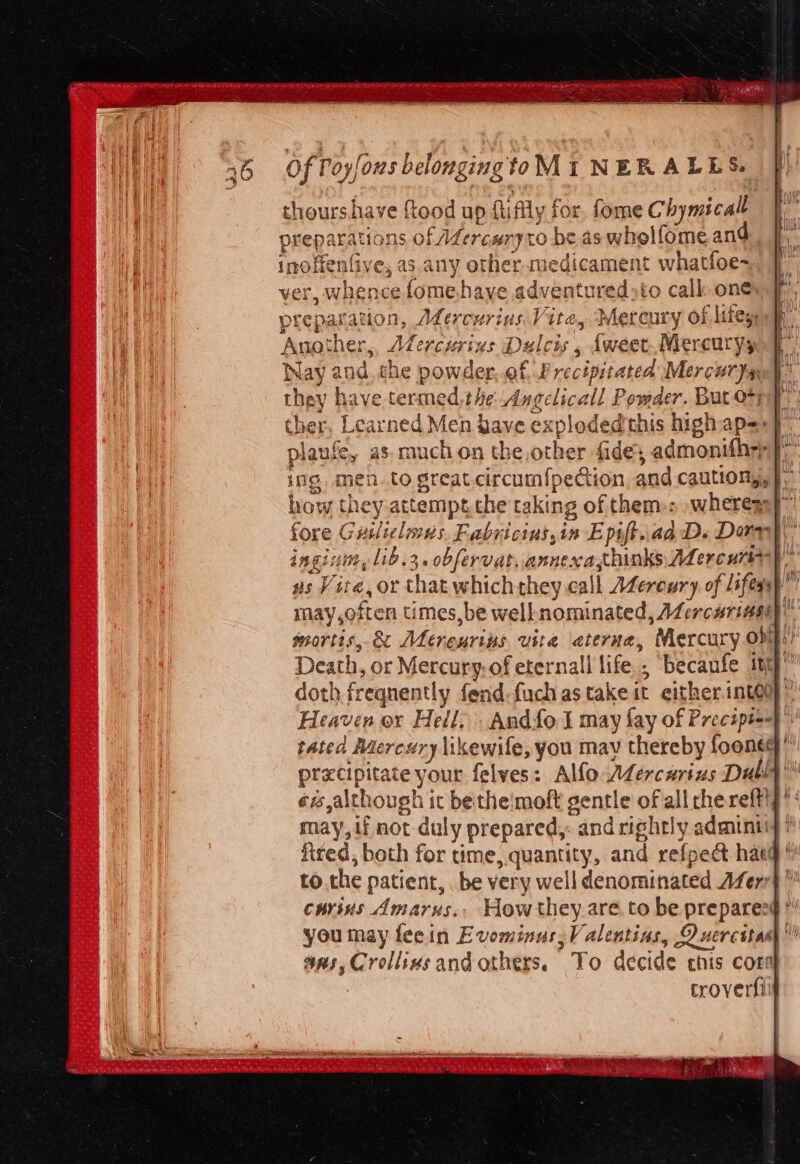 36 Of Poyſons belonging to MINERALLS.
thours have ſtood up ſtiffly for ſome Chymicall
preparations of Mercury to be as wholſome and
inoffenſive, as any other medicament whatſoe-
ver, whence ſome have adventured to call one
preparation, Mercurius Vitæ, Mercury of life,
Another, Mercurius Dulcis, ſweet Mercury,
Nay and the powder of Precipitated Mercury,
they have termed the Angelicall Powder. But o-
ther Learned Men have exploded this high ap-
plauſe, as much on the other ſide, admoniſh-
ing men to great circumſpection and caution,
how they attempt the taking of them: where-
fore Guilielmus Fabricius, in Epiſt. ad D. Dor
ingium, lib. 3. obſervat. annexa, thinks Mercuri-
us Vitæ, or that which they call Mercury of life,
may, often times, be well nominated, Mercurius
mortis, & Mercurius vitæ æternæ, Mercury of
Death, or Mercury of eternall life; becauſe it
doth freqnently ſend ſuch as take it either into
Heaven or Hell. And ſo I may ſay of Precipi-
tated Mercury likewiſe, you may thereby ſoone
præcipitate your ſelves: Alſo Mercurius Dul
cis, although it be the moſt gentle of all the reſt
may, if not duly prepared, and rightly admini
ſtred, both for time, quantity, and reſpect had
to the patient, be very well denominated Mer-
curius Amarus. How they are to be prepared
you may ſee in Evominus, Valentius, Quercitan
us, Crollius and others. To decide this con
troverſi